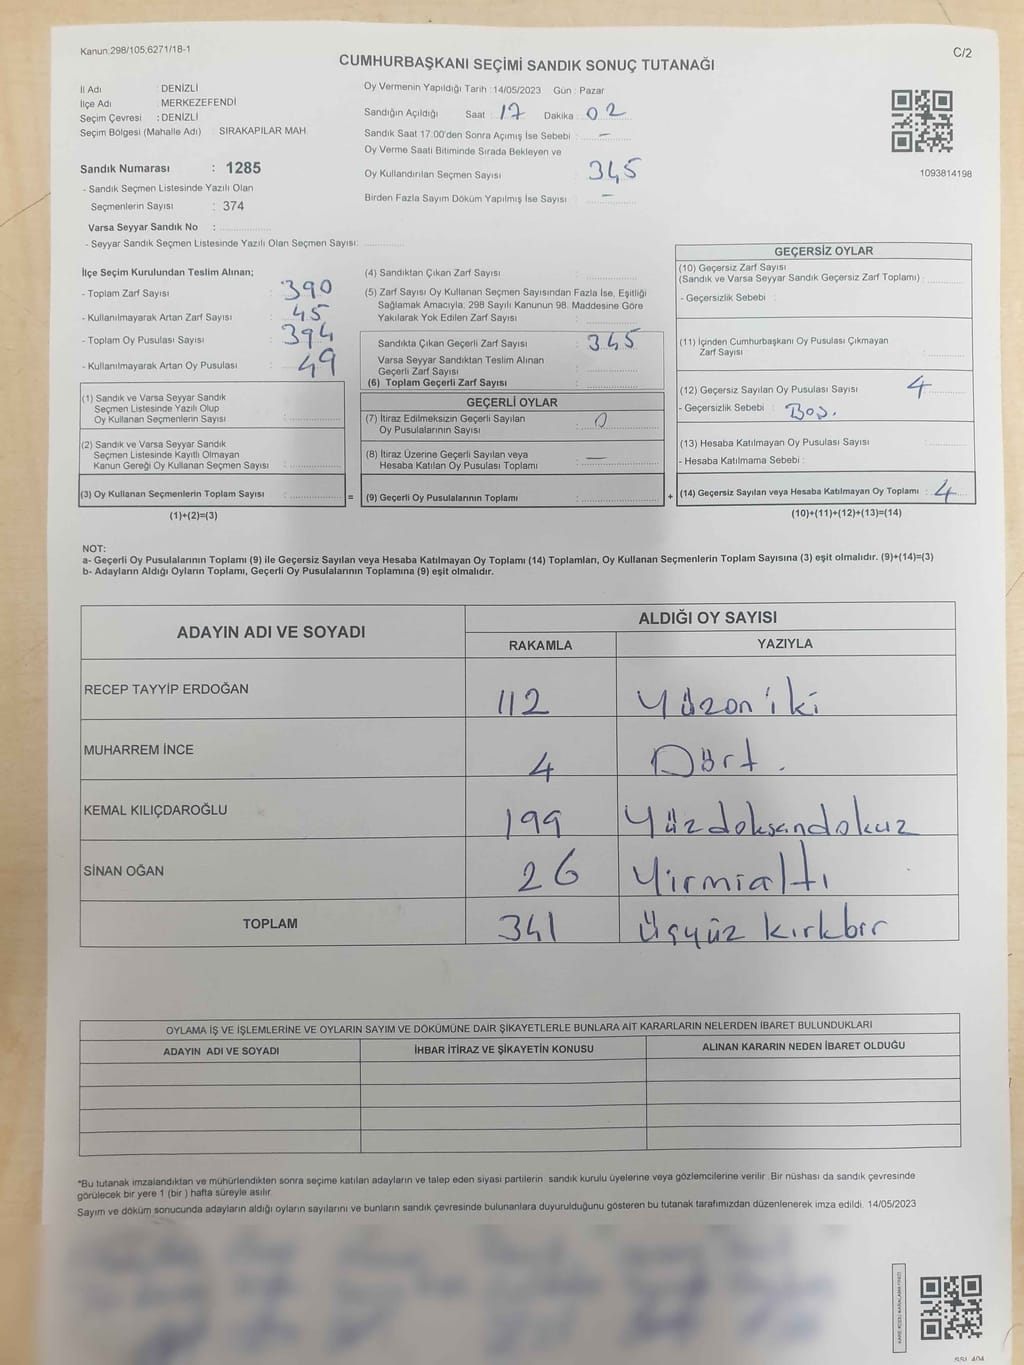 Kanun:298/105;6271/18-1
C/2
CUMHURBAŞKANI SEÇİMİ SANDIK SONUÇ TUTANAĞI
İl Adı : DENİZLİ
İlçe Adı : MERKEZEFENDİ
Seçim Çevresi : DENİZLİ
Seçim Bölgesi (Mahalle Adı) : SIRAKAPILAR MAH
Sandık Numarası : 1285
- Sandık Seçmen Listesinde Yazılı Olan
Seçmenlerin Sayısı : 374
Varsa Seyyar Sandık No :
- Seyyar Sandık Seçmen Listesinde Yazılı Olan Seçmen Sayısı:
Oy Vermenin Yapıldığı Tarih :14/05/2023 Gün : Pazar
Sandığın Açıldığı Saat : 17 Dakika : 02
Sandık Saat 17:00'den Sonra Açımış İse Sebebi : -
Oy Verme Saati Bitiminde Sırada Bekleyen ve
Oy Kullandırılan Seçmen Sayısı 345
Birden Fazla Sayım Döküm Yapılmış İse Sayısı : -
1093814198
İlçe Seçim Kurulundan Teslim Alınan;
- Toplam Zarf Sayısı : 390
- Kullanılmayarak Artan Zarf Sayısı : 45
- Toplam Oy Pusulası Sayısı : 394
- Kullanılmayarak Artan Oy Pusulası : 49
(1) Sandık ve Varsa Seyyar Sandık
Seçmen Listesinde Yazılı Olup
Oy Kullanan Seçmenlerin Sayısı :
(2) Sandık ve Varsa Seyyar Sandık
Seçmen Listesinde Kayıtlı Olmayan
Kanun Gereği Oy Kullanan Seçmen Sayısı :
(3) Oy Kullanan Seçmenlerin Toplam Sayısı : =
(1)+(2)=(3)
(4) Sandıktan Çıkan Zarf Sayısı :
(5) Zarf Sayısı Oy Kullanan Seçmen Sayısından Fazla İse, Eşitliği
Sağlamak Amacıyla; 298 Sayılı Kanunun 98. Maddesine Göre
Yakılarak Yok Edilen Zarf Sayısı :
Sandıkta Çıkan Geçerli Zarf Sayısı : 345
Varsa Seyyar Sandıktan Teslim Alınan
Geçerli Zarf Sayısı :
(6) Toplam Geçerli Zarf Sayısı :
GEÇERLİ OYLAR
(7) İtiraz Edilmeksizin Geçerli Sayılan
Oy Pusulalarının Sayısı : 0
(8) İtiraz Üzerine Geçerli Sayılan veya
Hesaba Katılan Oy Pusulası Toplamı : —
(9) Geçerli Oy Pusulalarının Toplamı : +
GEÇERSİZ OYLAR
(10) Geçersiz Zarf Sayısı
(Sandık ve Varsa Seyyar Sandık Geçersiz Zarf Toplamı) :
- Geçersizlik Sebebi :
(11) İçinden Cumhurbaşkanı Oy Pusulası Çıkmayan
Zarf Sayısı :
(12) Geçersiz Sayılan Oy Pusulası Sayısı : 4
- Geçersizlik Sebebi : Boş.
(13) Hesaba Katılmayan Oy Pusulası Sayısı :
- Hesaba Katılmama Sebebi :
(14) Geçersiz Sayılan veya Hesaba Katılmayan Oy Toplamı : 4
(10)+(11)+(12)+(13)=(14)
NOT:
a- Geçerli Oy Pusulalarının Toplamı (9) ile Geçersiz Sayılan veya Hesaba Katılmayan Oy Toplamı (14) Toplamları, Oy Kullanan Seçmenlerin Toplam Sayısına (3) eşit olmalıdır. (9)+(14)=(3)
b- Adayların Aldığı Oyların Toplamı, Geçerli Oy Pusulalarının Toplamına (9) eşit olmalıdır.
ADAYIN ADI VE SOYADI
ALDIĞI OY SAYISI
RAKAMLA YAZIYLA
RECEP TAYYİP ERDOĞAN 112 Yüzon iki
MUHARREM İNCE 4 Dört.
KEMAL KILIÇDAROĞLU 199 Yüzdoksandokuz
SİNAN OĞAN 26 Yirmialtı
TOPLAM 341 Üçyüz kırkbir
OYLAMA İŞ VE İŞLEMLERİNE VE OYLARIN SAYIM VE DÖKÜMÜNE DAİR ŞİKAYETLERLE BUNLARA AİT KARARLARIN NELERDEN İBARET BULUNDUKLARI
ADAYIN ADI VE SOYADI İHBAR İTİRAZ VE ŞİKAYETİN KONUSU ALINAN KARARIN NEDEN İBARET OLDUĞU
*Bu tutanak imzalandıktan ve mühürlendikten sonra seçime katılan adayların ve talep eden siyasi partilerin sandık kurulu üyelerine veya gözlemcilerine verilir. Bir nüshası da sandık çevresinde
görülecek bir yere 1 (bir ) hafta süreyle asılır.
Sayım ve döküm sonucunda adayların aldığı oyların sayılarını ve bunların sandık çevresinde bulunanlara duyurulduğunu gösteren bu tutanak tarafımızdan düzenlenerek imza edildi. 14/05/2023